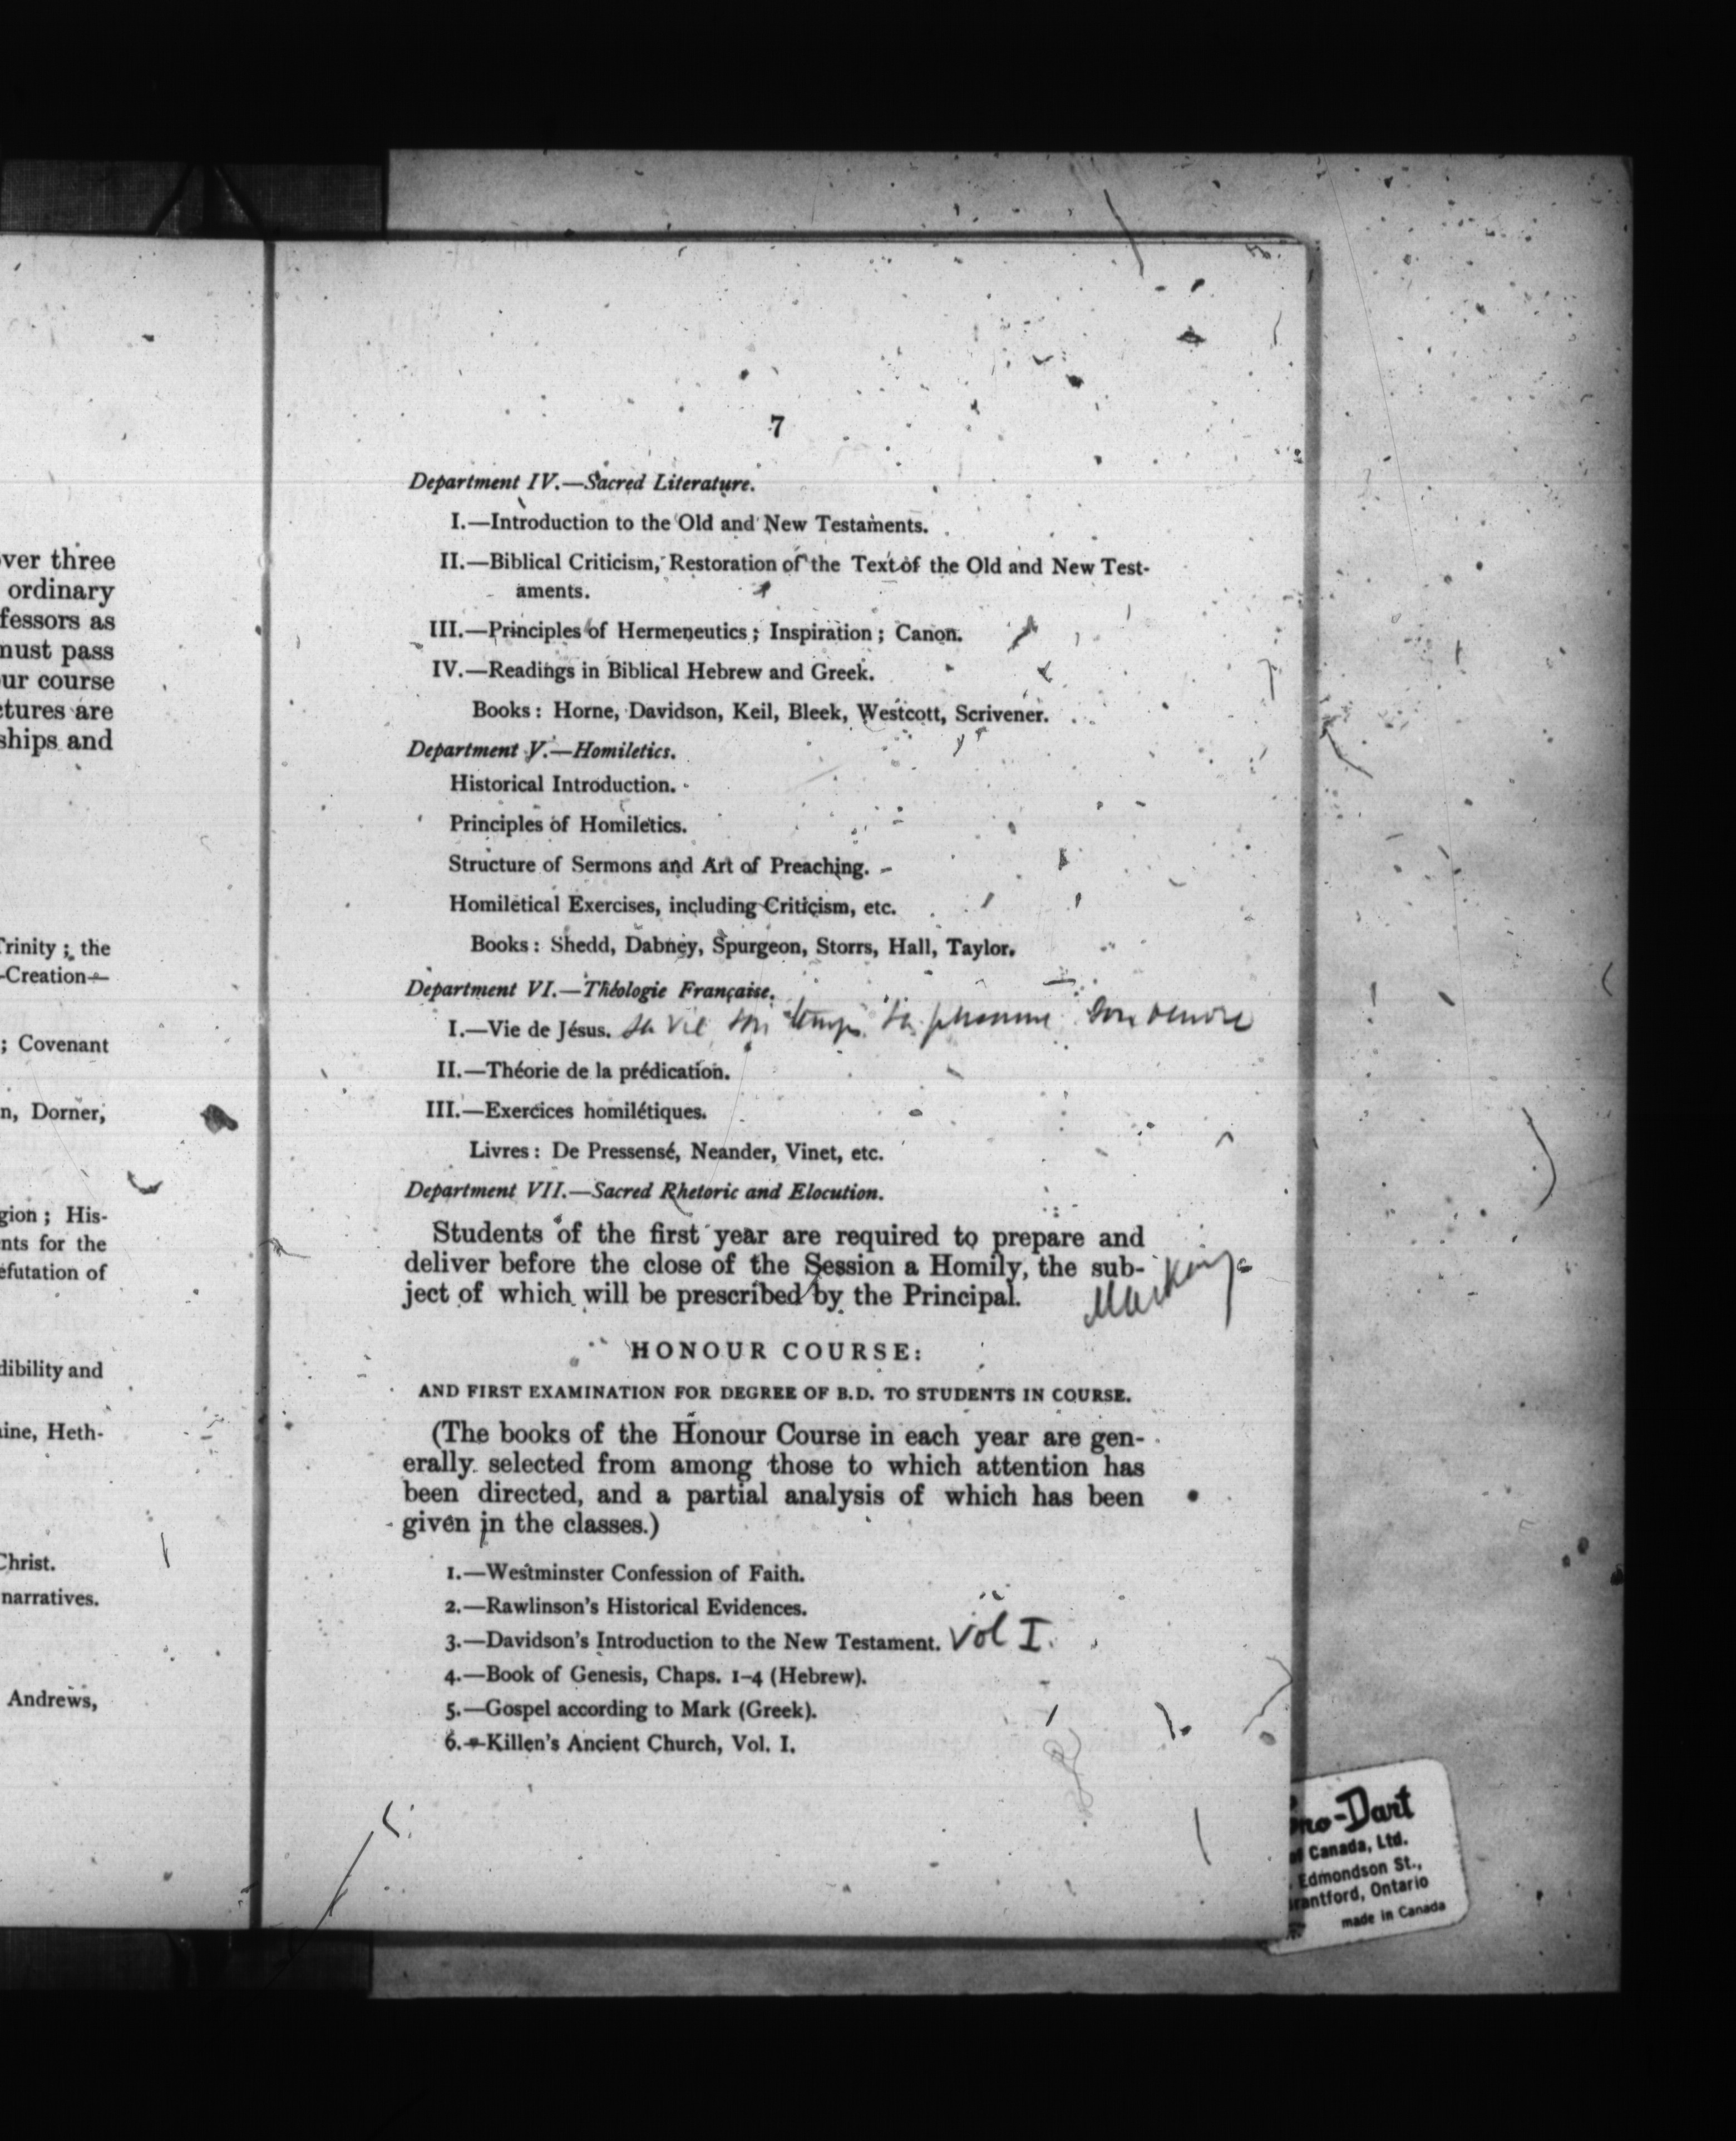 ver three
ordinary
fessors as
must pass
ur course
ctures are
ships and
Trinity ; the
-Creation—
; Covenant
n, Dorner,
gion ; His-
nts for the
efutation of
dibility and
ine, Heth-
Christ.
narratives.
Andrews,
7
Department IV.—Sacred Literature.
I.—Introduction to the Old and New Testaments.
II.—Biblical Criticism, Restoration of the Text of the Old and New Test-
aments.
III.—Principles of Hermeneutics ; Inspiration ; Canon.
IV.—Readings in Biblical Hebrew and Greek.
Books : Horne, Davidson, Keil, Bleek, Westcott, Scrivener.
Department V.—Homiletics.
Historical Introduction.
Principles of Homiletics.
Structure of Sermons and Art of Preaching.
Homiletical Exercises, including Criticism, etc.
Books : Shedd, Dabney, Spurgeon, Storrs, Hall, Taylor.
Department VI.—Théologie Française.
I.—Vie de Jésus. Sa vie, son temps, sa personne son oeuvre
II.—Théorie de la prédication.
III.—Exercices homilétiques.
Livres : De Pressensé, Neander, Vinet, etc.
Department VII.—Sacred Rhetoric and Elocution.
Students of the first year are required to prepare and
deliver before the close of the Session a Homily, the sub-
ject of which will be prescribed by the Principal.
HONOUR COURSE:
AND FIRST EXAMINATION FOR DEGREE OF B.D. TO STUDENTS IN COURSE.
(The books of the Honour Course in each year are gen-
erally selected from among those to which attention has
been directed, and a partial analysis of which has been
given in the classes.)
1.—Westminster Confession of Faith.
2.—Rawlinson's Historical Evidences.
3.—Davidson's Introduction to the New Testament. Vol I.
4.—Book of Genesis, Chaps. 1-4 (Hebrew).
5.—Gospel according to Mark (Greek).
6.—Killen's Ancient Church, Vol. I.
ro-Dart
of Canada, Ltd.
Edmondson St.,
rantford, Ontario
made in Canada